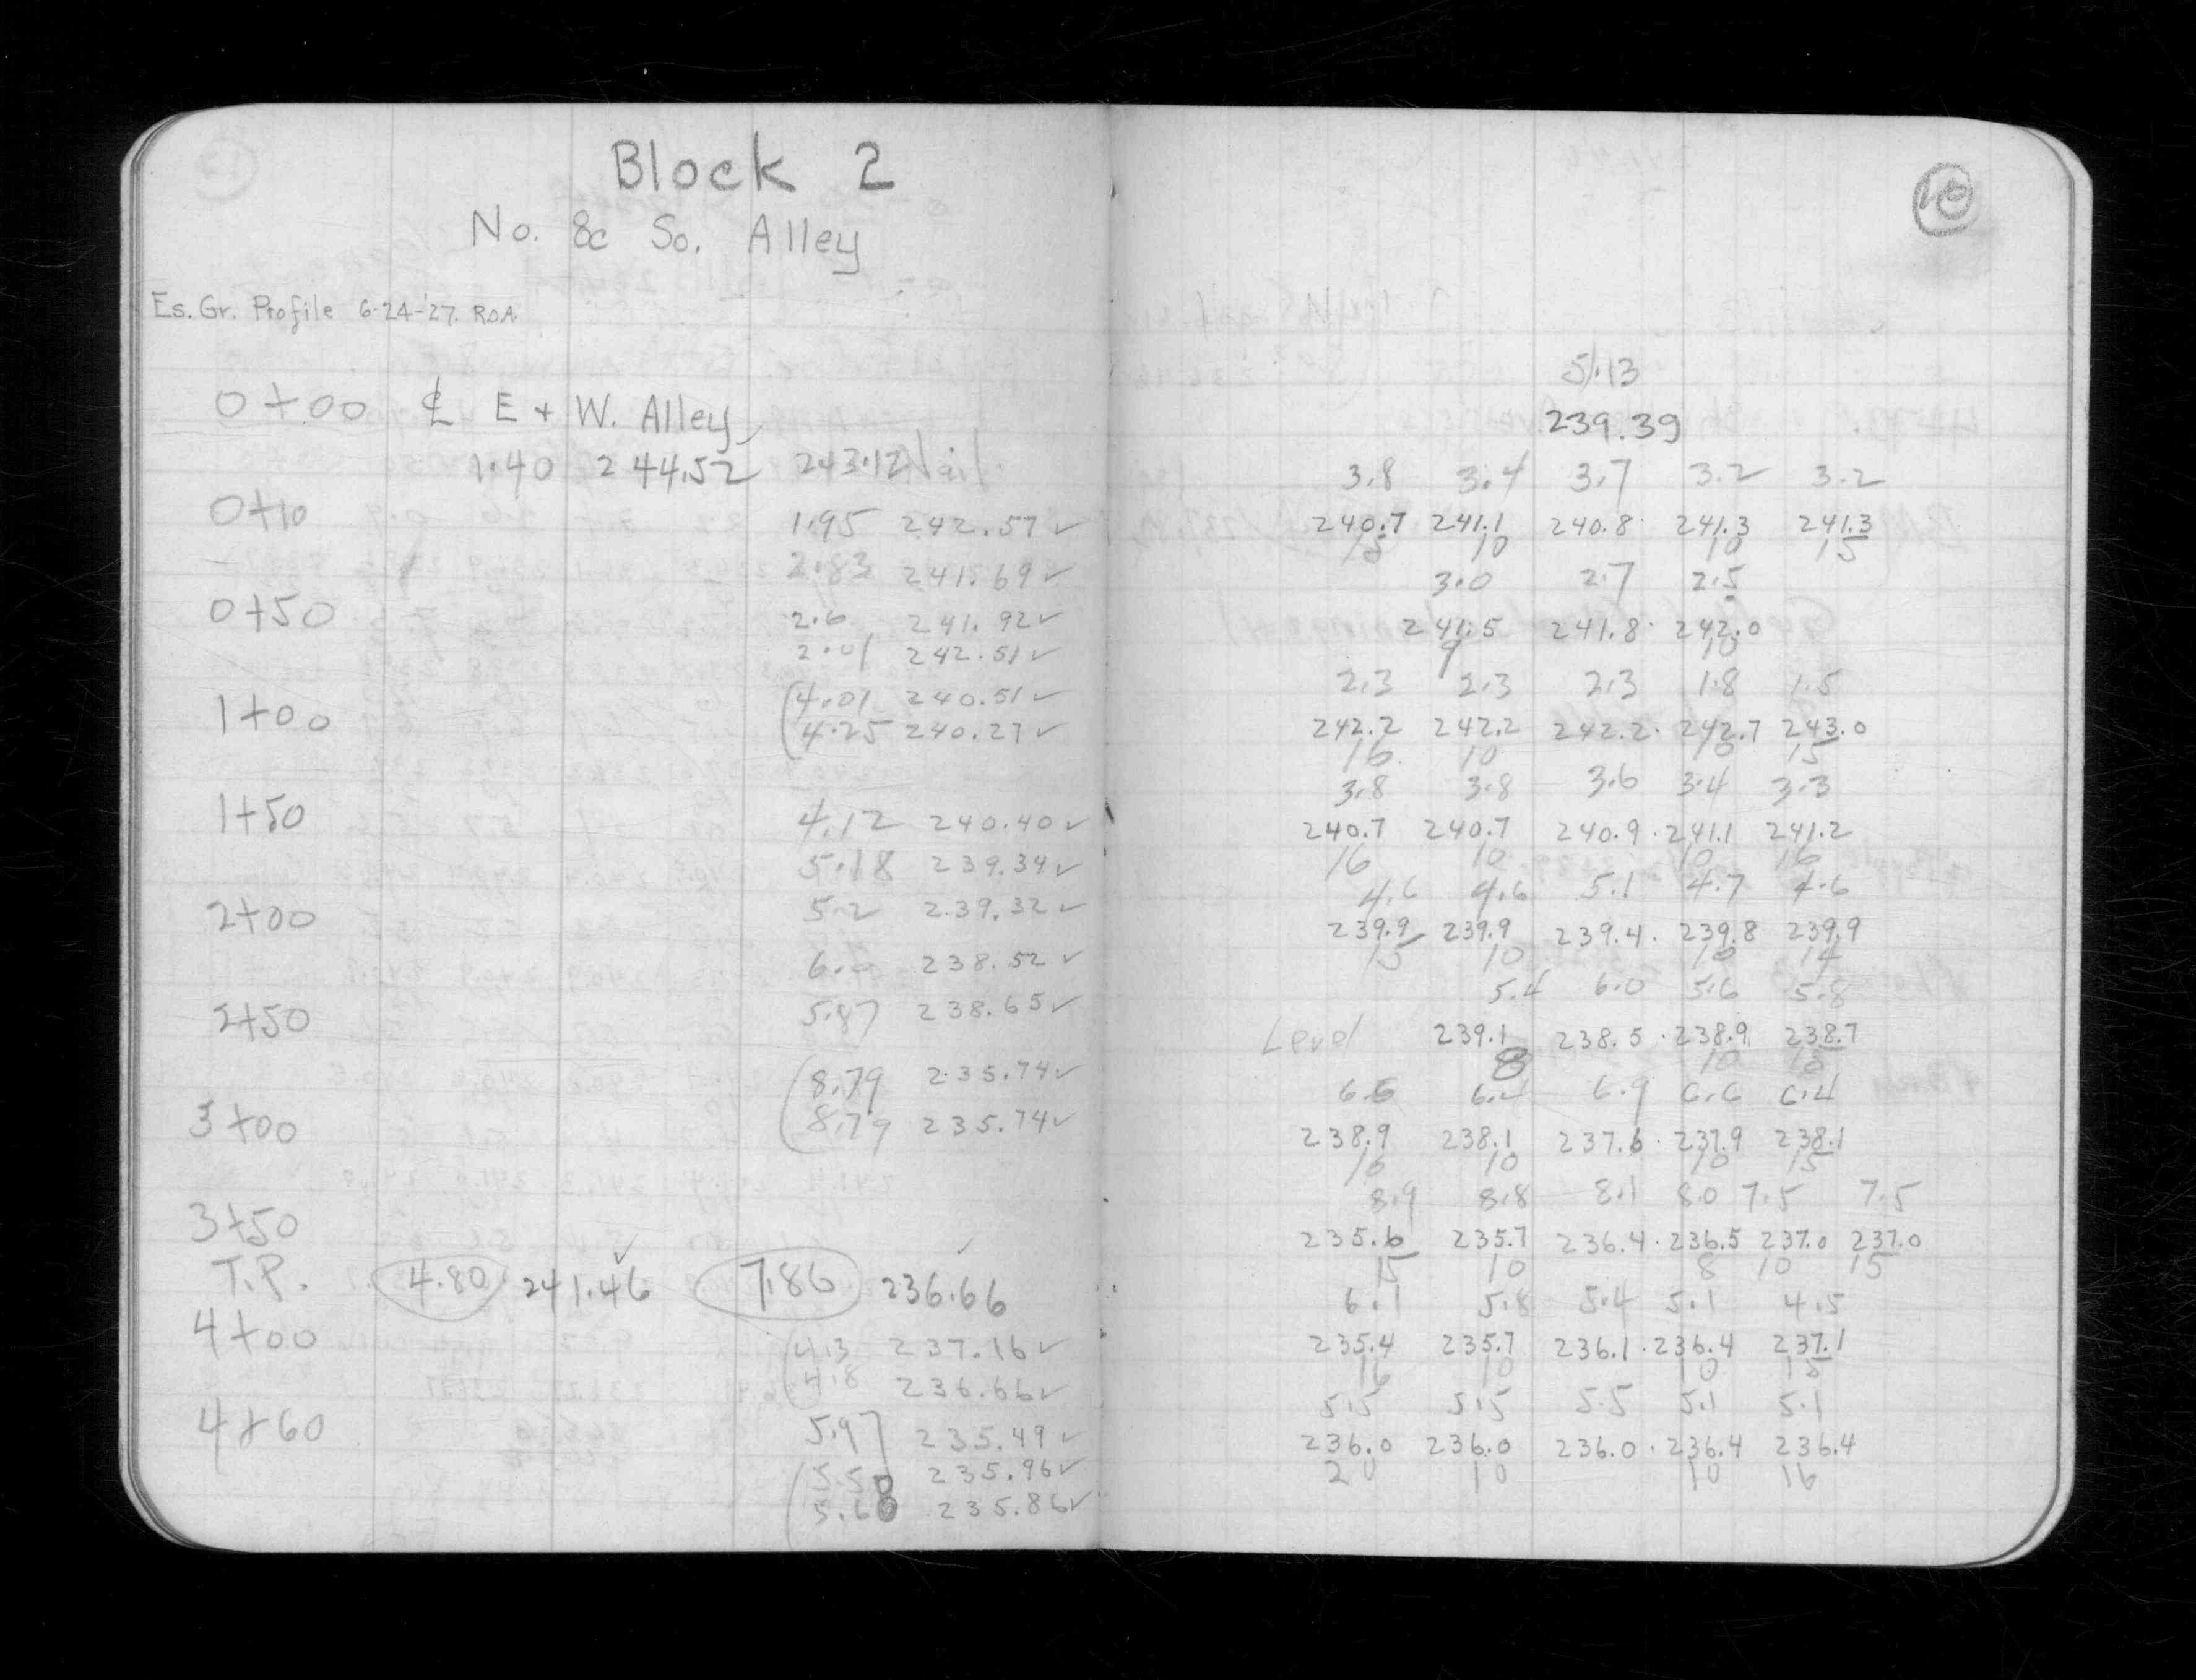 Block 2
No. & So. Alley
Es. Gr. Profile 6-24-'27. R.O.A.
0+00 ℄ E + W. Alley
1.40 244.52 243.12 Nail.
0+10 1.95 242.57 ✓
2.83 241.69 ✓
0+50 2.6 241.92 ✓
2.01 242.51 ✓
(4.01 240.51 ✓
1+00 (4.25 240.27 ✓
1+50 4.12 240.40 ✓
5.18 239.34 ✓
2+00 5.2 239.32 ✓
6.0 238.52 ✓
2+50 5.87 238.65 ✓
(8.79 235.74 ✓
3+00 (8.79 235.74 ✓
3+50
T.P. 4.80 241.46 ✓ 7.86 236.66 ✓
4+00 (4.3 237.16 ✓
(4.8 236.66 ✓
4+60 5.97 235.49 ✓
(5.50 235.96 ✓
(5.60 235.86 ✓
10
5.13
239.39
3.8 3.4 3.7 3.2 3.2
240.7 241.1 240.8 241.3 241.3
15 10 10 15
3.0 2.7 2.5
241.5 241.8 242.0
9 10
2.3 2.3 2.3 1.8 1.5
242.2 242.2 242.2 242.7 243.0
16 10 10 15
3.8 3.8 3.6 3.4 3.3
240.7 240.7 240.9 241.1 241.2
16 10 10 16
4.6 4.6 5.1 4.7 4.6
239.9 239.9 239.4 239.8 239.9
15 10 10 14
5.4 6.0 5.6 5.8
Level 239.1 238.5 238.9 238.7
8 10 15
6.6 6.4 6.9 6.6 6.4
238.9 238.1 237.6 237.9 238.1
16 10 10 15
8.9 8.8 8.1 8.0 7.5 7.5
235.6 235.7 236.4 236.5 237.0 237.0
15 10 8 10 15
6.1 5.8 5.4 5.1 4.5
235.4 235.7 236.1 236.4 237.1
16 10 10 15
5.5 5.5 5.5 5.1 5.1
236.0 236.0 236.0 236.4 236.4
20 10 10 16